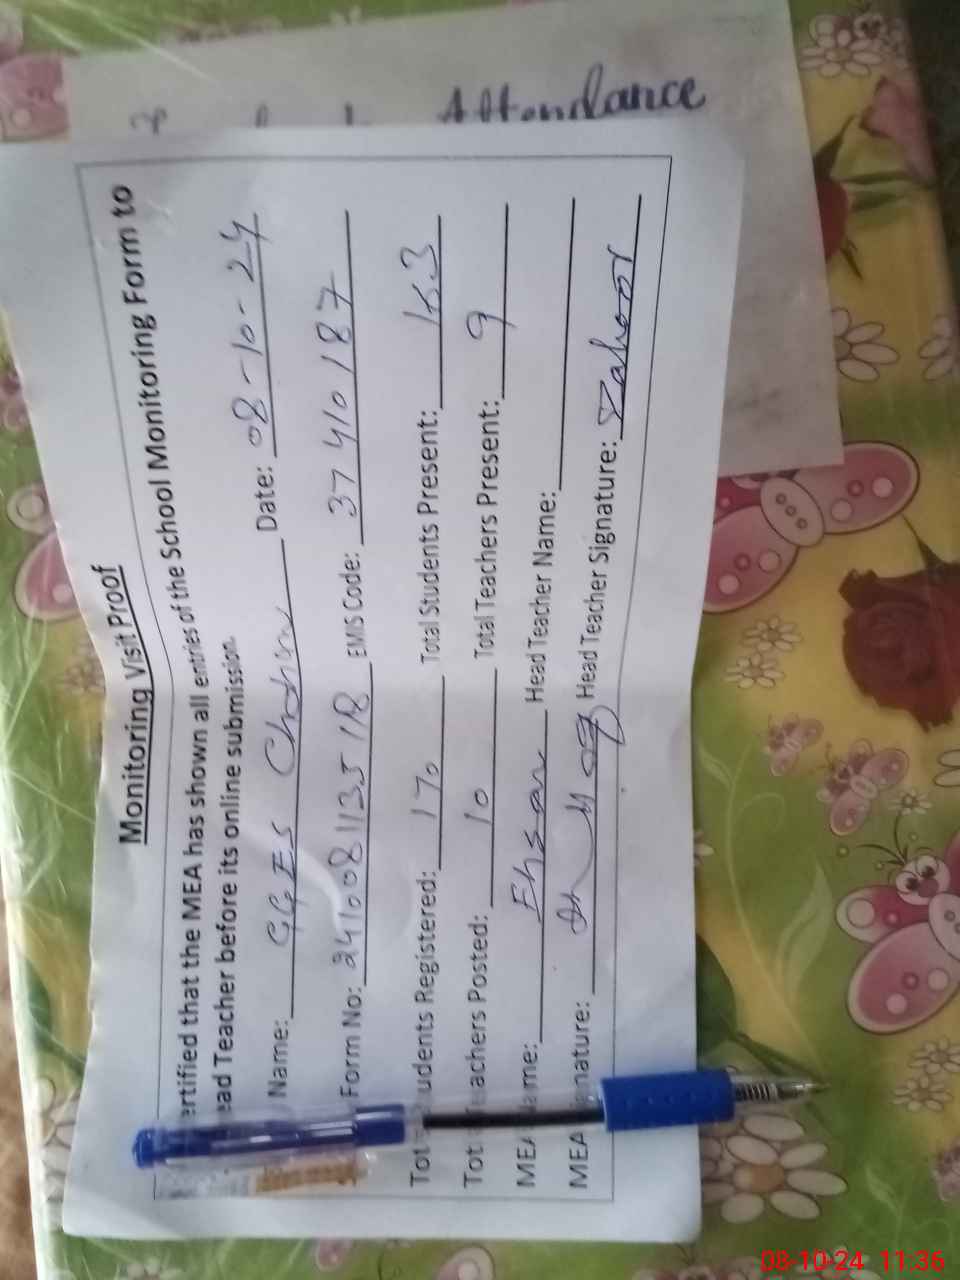 Attendance
Monitoring Visit Proof
ertified that the MEA has shown all entries of the School Monitoring Form to
ead Teacher before its online submission.
Name: GGES Date: 08-10-24
Form No: 241008113518 EMIS Code: 37410187
Tot udents Registered: 170 Total Students Present: 153
Tot eachers Posted: 10 Total Teachers Present: 9
MEA ame: Ehsan Head Teacher Name:
MEA gnature: Head Teacher Signature: Zahoor
08-10-24 11:36